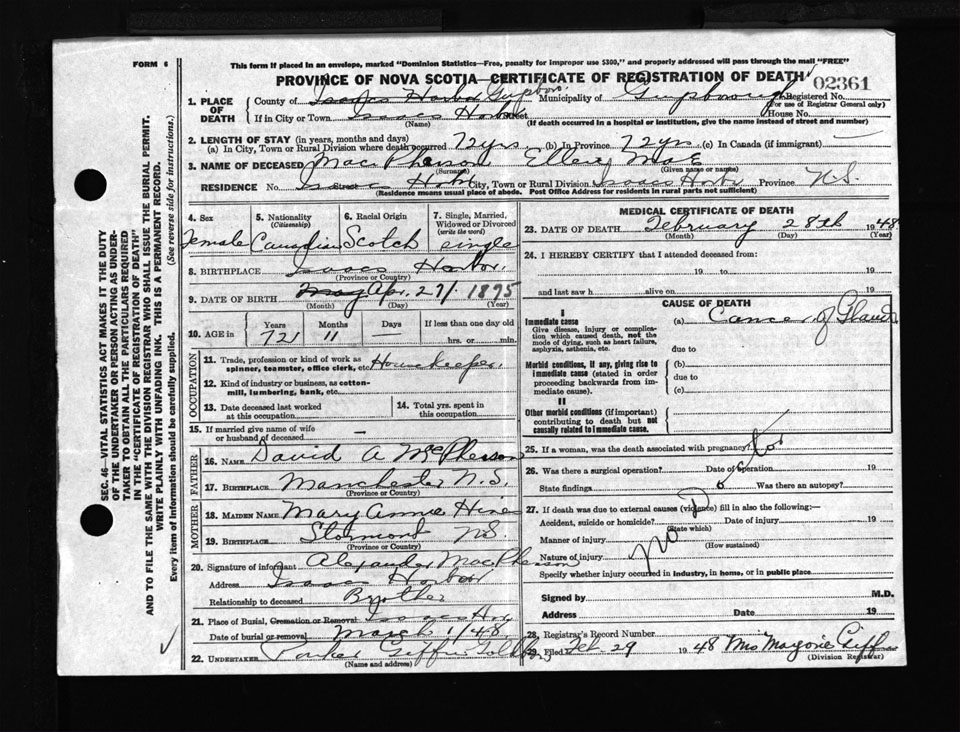 FORM 6
This form if placed in an envelope, marked "Dominion Statistics—Free, penalty for improper use $300," and properly addressed will pass through the mail "FREE"
PROVINCE OF NOVA SCOTIA—CERTIFICATE OF REGISTRATION OF DEATH
02361
1. PLACE OF DEATH
County of Isaacs Harbor Municipality of Registered No.
(For use of Registrar General only)
If in City or Town Isaacs Harbor Street House No.
(Name) (If death occurred in a hospital or institution, give the name instead of street and number)
2. LENGTH OF STAY (in years, months and days)
(a) In City, Town or Rural Division where death occurred 72 yrs. (b) In Province 72 yrs (c) In Canada (if immigrant) —
3. NAME OF DECEASED MacPherson Ellery Mae
(Surname) (Given name or names)
RESIDENCE No. Isaacs Street Harbor City, Town or Rural Division Isaacs Harbor Province N.S.
(Residence means usual place of abode. Post Office Address for residents in rural parts not sufficient)
4. Sex
Female
5. Nationality
(Citizenship)
Canadian
6. Racial Origin
Scotch
7. Single, Married, Widowed or Divorced
(write the word)
single
8. BIRTHPLACE Isaacs Harbor.
(Province or Country)
9. DATE OF BIRTH May Apr. 27/ 1875
(Month) (Day) (Year)
10. AGE in
Years Months Days If less than one day old
72 11 hrs. or min.
OCCUPATION
11. Trade, profession or kind of work as spinner, teamster, office clerk, etc. Housekeeper.
12. Kind of industry or business, as cotton-mill, lumbering, bank, etc.
13. Date deceased last worked at this occupation
14. Total yrs. spent in this occupation
15. If married give name of wife or husband of deceased —
FATHER
16. NAME David A McPherson
17. BIRTHPLACE Manchester N.S.
(Province or Country)
MOTHER
18. MAIDEN NAME Mary Annie Hines
19. BIRTHPLACE Stormont N.S.
(Province or Country)
20. Signature of informant Alexander MacPherson
Address Isaacs Harbor
Relationship to deceased Brother
21. Place of Burial, Cremation or Removal Isaacs Hr.
Date of burial or removal March 1/48.
22. UNDERTAKER Parker Giffin
(Name and address)
MEDICAL CERTIFICATE OF DEATH
23. DATE OF DEATH February 28th 1948
(Month) (Day) (Year)
24. I HEREBY CERTIFY that I attended deceased from:
19 to 19
and last saw h alive on 19
CAUSE OF DEATH
I
Immediate cause (a) Cancer of Glands
Give disease, injury or complication which caused death, not the mode of dying, such as heart failure, asphyxia, asthenia, etc.
due to
Morbid conditions, if any, giving rise to immediate cause (stated in order proceeding backwards from immediate cause).
(b)
due to
(c)
II
Other morbid conditions (if important) contributing to death but not causally related to immediate cause.
25. If a woman, was the death associated with pregnancy? No
26. Was there a surgical operation? Date of operation 19
State findings Was there an autopsy?
27. If death was due to external causes (violence) fill in also the following:—
Accident, suicide or homicide? Date of injury 19
(State which)
Manner of injury
(How sustained)
Nature of injury No
Specify whether injury occurred in industry, in home, or in public place
Signed by M.D.
Address Date 19
28. Registrar's Record Number
29. Filed Feb 29 1948 Mrs Marjorie Giffin
(Division Registrar)
SEC. 46—VITAL STATISTICS ACT MAKES IT THE DUTY
OF THE UNDERTAKER OR PERSON ACTING AS UNDER-
TAKER TO OBTAIN ALL THE PARTICULARS REQUIRED
IN THE "CERTIFICATE OF REGISTRATION OF DEATH"
AND TO FILE THE SAME WITH THE DIVISION REGISTRAR WHO SHALL ISSUE THE BURIAL PERMIT.
WRITE PLAINLY WITH UNFADING INK. THIS IS A PERMANENT RECORD.
Every item of information should be carefully supplied. (See reverse side for instructions.)